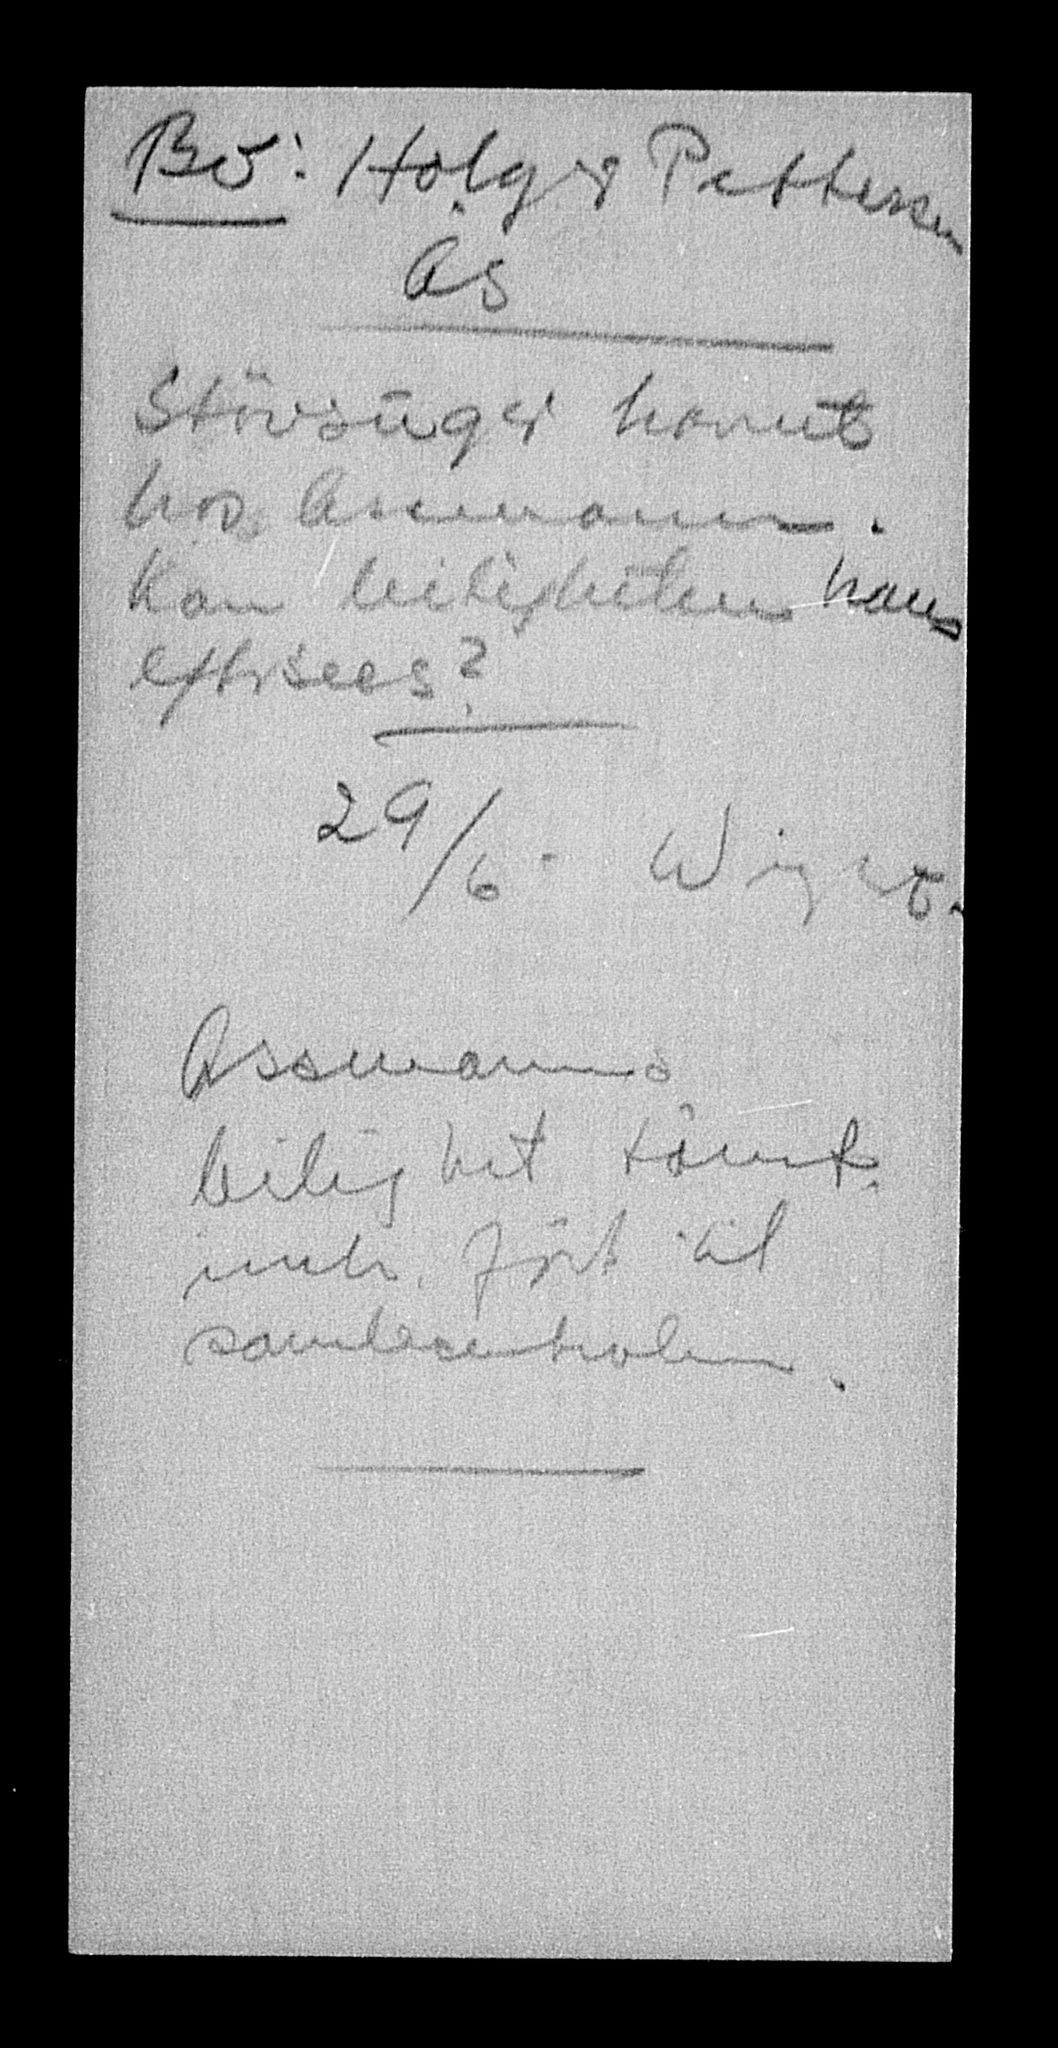 Bö: Holger Pettersen
Ås
Stövsuger havnet
hos Assmann.
Kan leiligheten hans
eftersees?
29/6. 
Assmanns
leilighet tömt.
innb. fört til
samlecentralen.